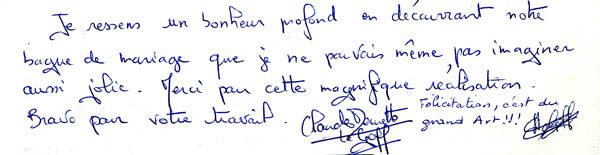 Je ressens un bonheur profond en découvrant notre
bague de mariage que je ne pouvais même pas imaginer
aussi jolie. Merci pour cette magnifique réalisation.
Bravo pour votre travail.
Félicitation, c'est du
grand Art!!!